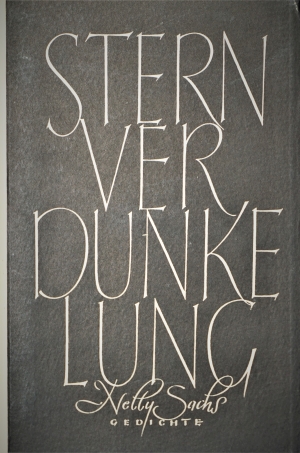 STERN
VER
DUNKE
LUNG
Nelly Sachs
GEDICHTE